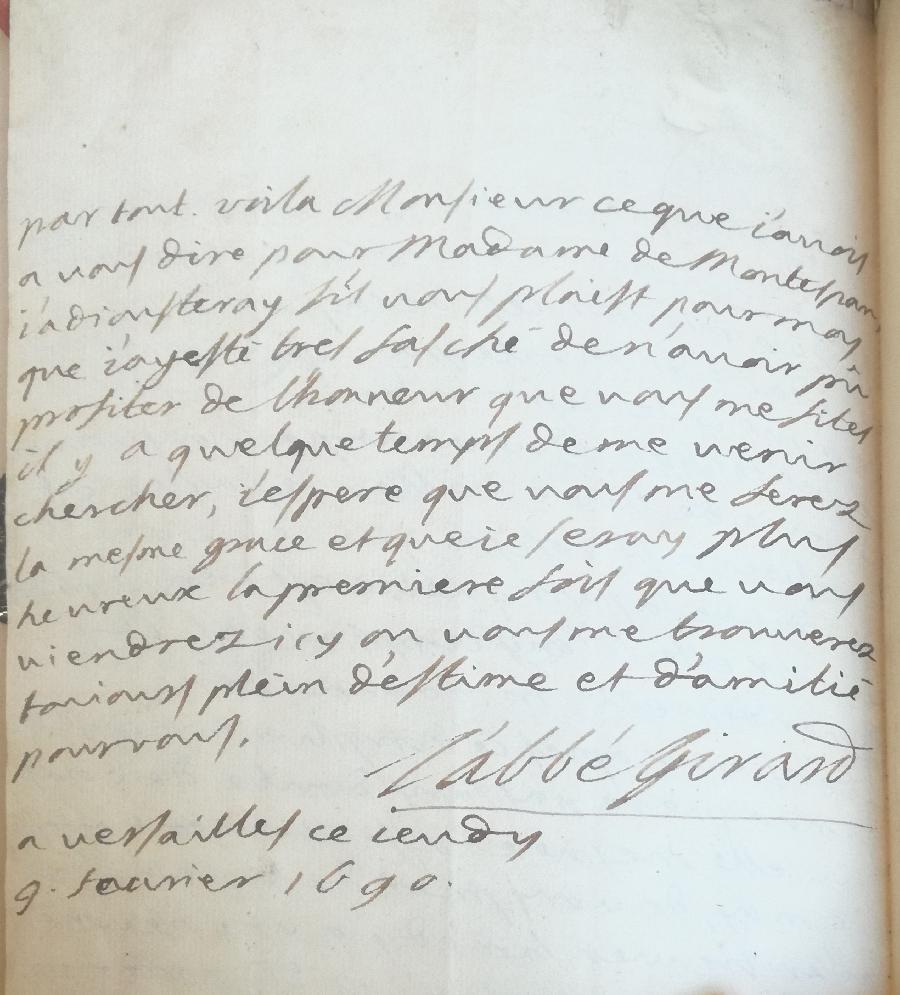 par tout. voila Monsieur ce que i'auois
a vous dire pour Madame de Montespan,
i'adiousteray s'il vous plaist pour moy
que i'ay esté tres fasché de n'auoir pû
profiter de l'honneur que vous me fites
il y a quelque temps de me venir
chercher, i'espere que vous me ferez
la mesme grace et que ie seray plus
heureux la premiere fois que vous
viendrez icy ou vous me trouuerez
touiours plein d'estime et d'amitié
pour vous.
L'abbé Girard
a versailles ce ieudy
9. feurier 1690.